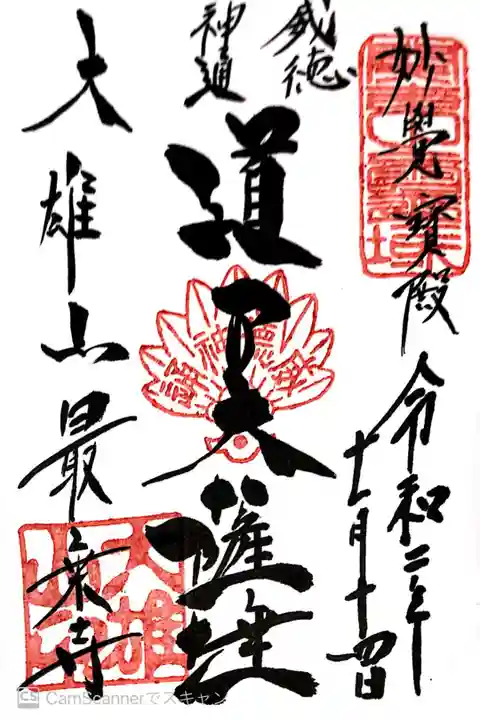 妙覺寳殿
令和二年
十一月十四日
威徳
神通
道了大薩埵
大雄山最乗寺
CS CamScannerでスキャン